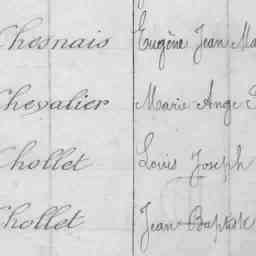 Chesnais Eugène Jean Ma
Chevalier Marie Ange
Chollet Louis Joseph
Chollet Jean Baptiste